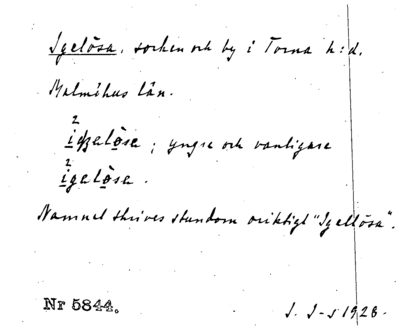 Igelösa, socken och by i Torna h:d.
Malmöhus län.
2
igelösa; yngre och vanligare
2
igelösa.
Namnet skrives stundom oriktigt "Igellösa".
Nr 5844. J. J-s 1928.